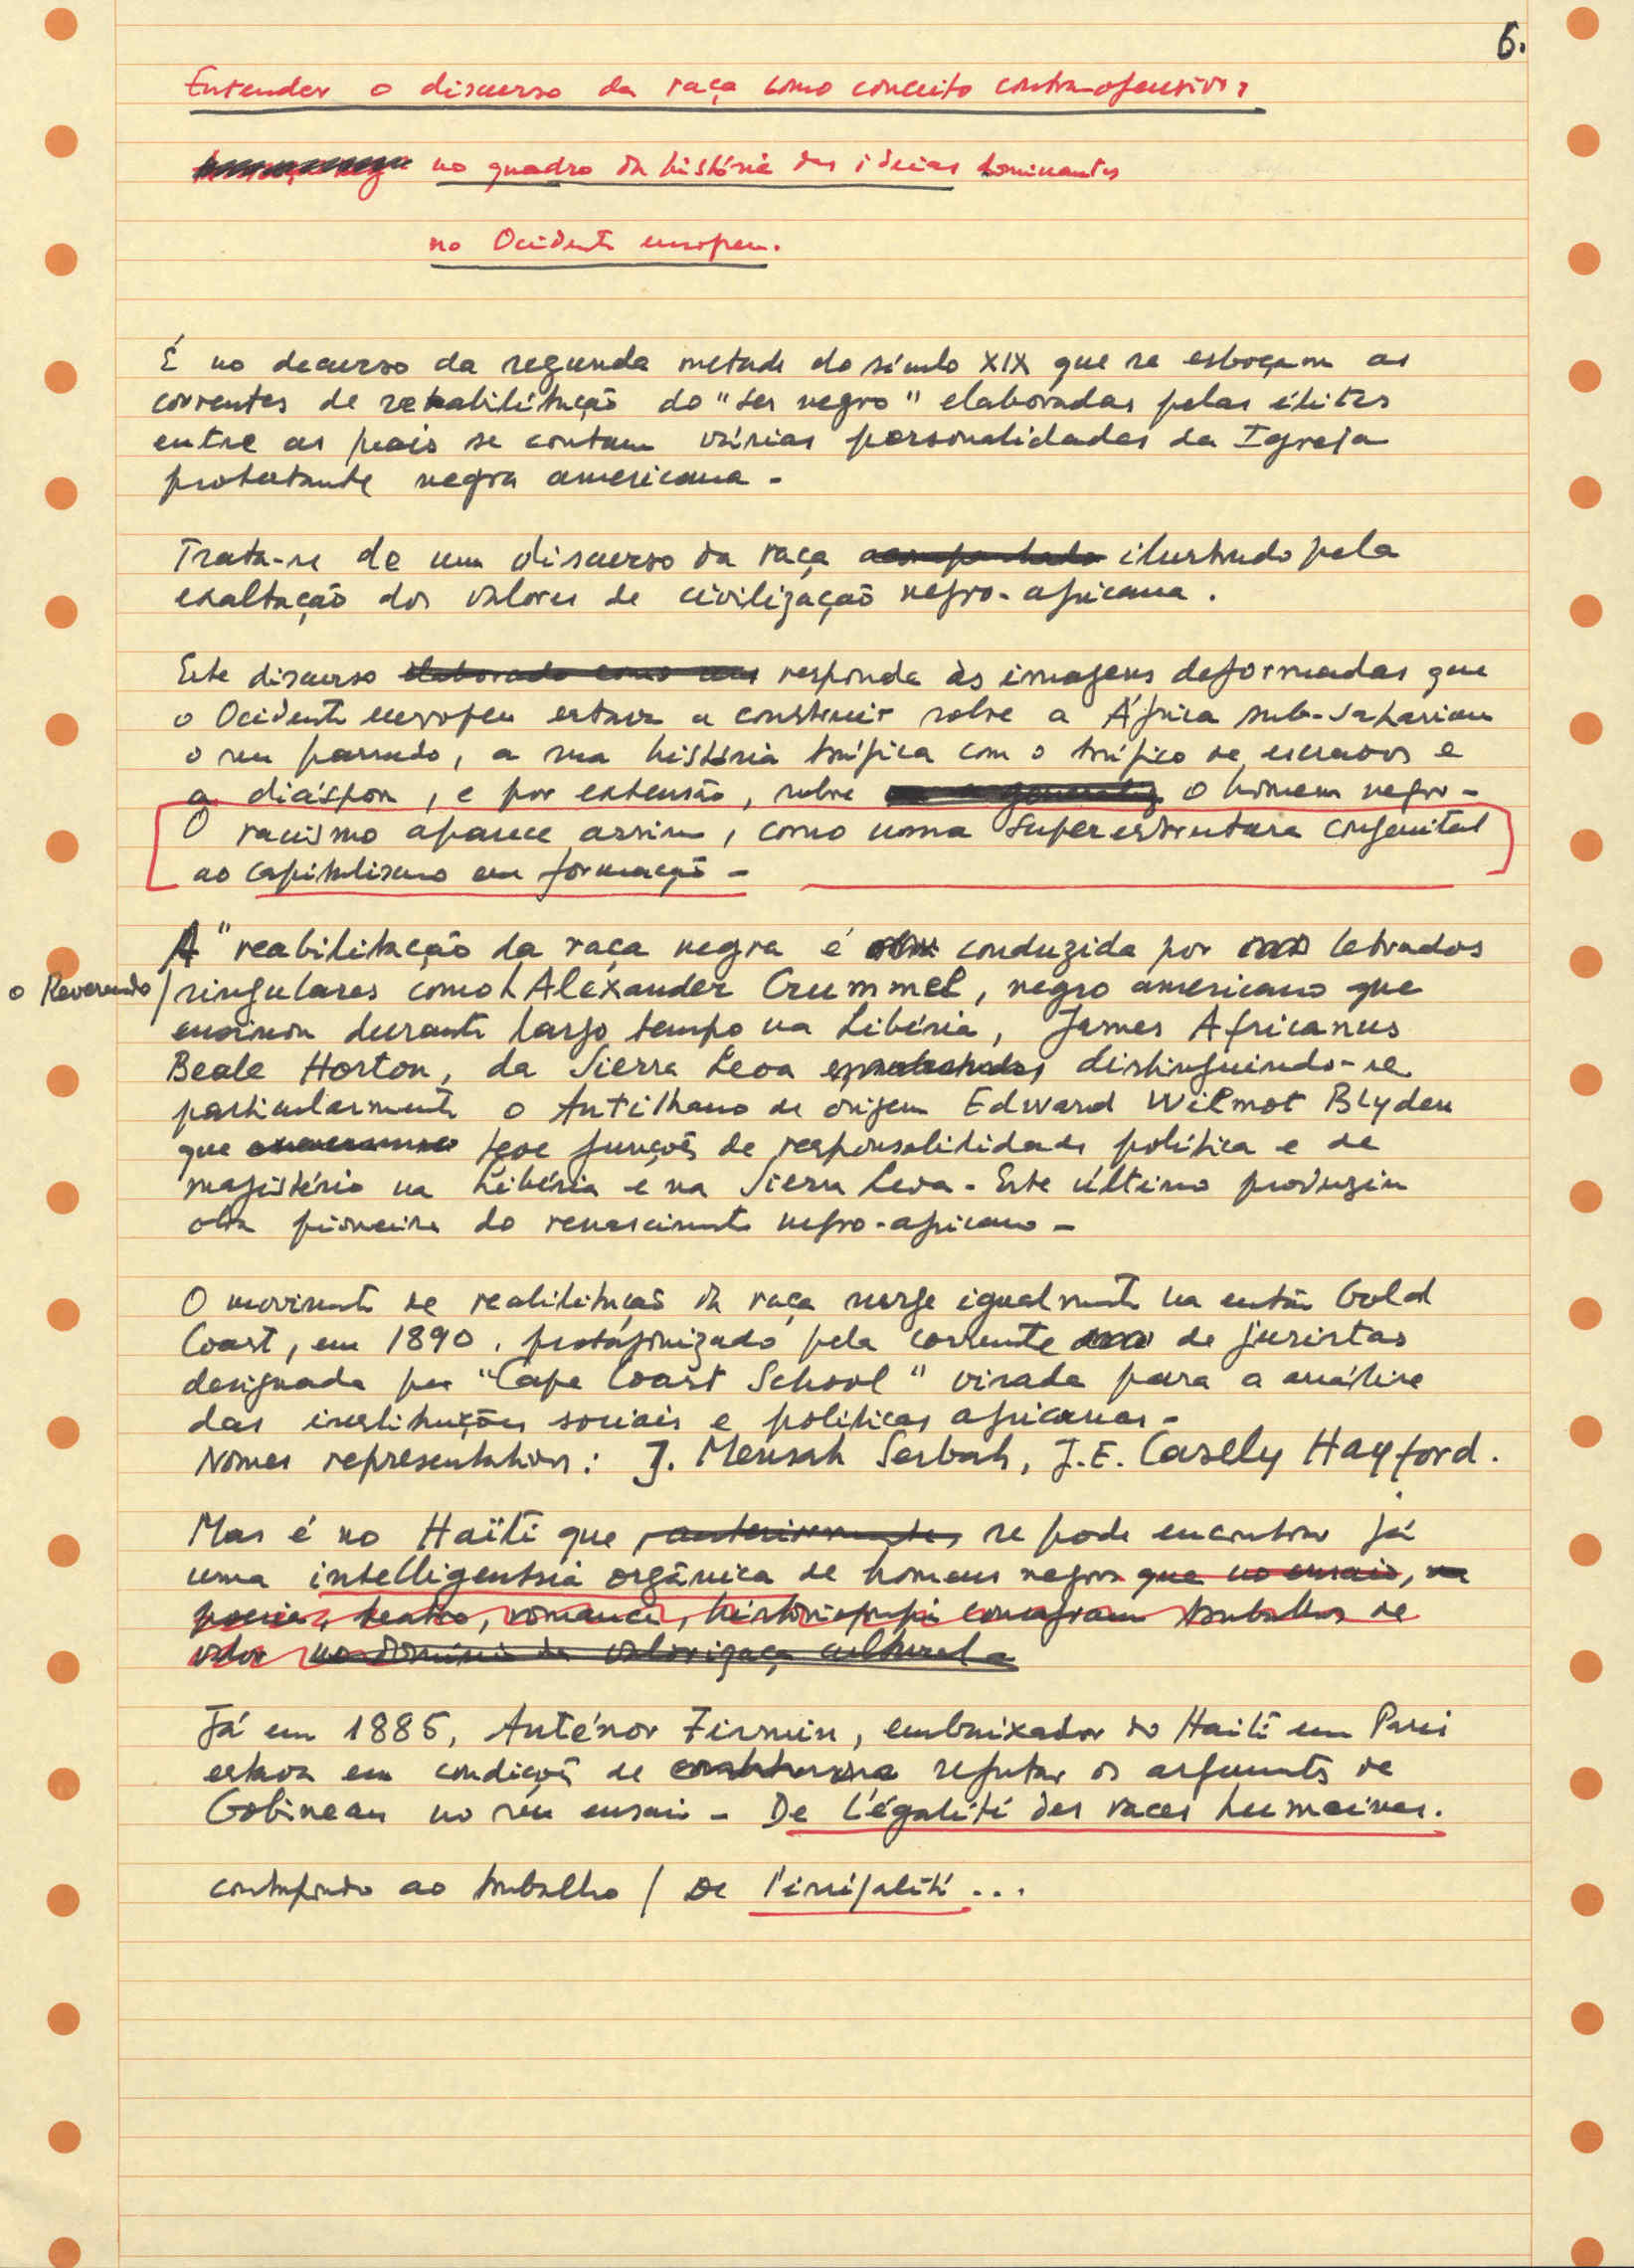 6.
Entender o discurso da raça como conceito contra-ofensivo,
no quadro da história das ideias dominantes
no Ocidente europeu.
É no decurso da segunda metade do século XIX que se esboçam as
correntes de reabilitação do "ser negro" elaboradas pelas élites
entre as quais se contam várias personalidades da Igreja
protestante negra americana -
Trata-se de um discurso da raça acompanhado ilustrado pela
exaltação dos valores de civilização negro-africana.
Este discurso elaborado como uma responde às imagens deformadas que
o Ocidente europeu estava a construir sobre a África sub-sahariana
o seu passado, a sua história trágica com o tráfico de escravos e
a diáspora, e por extensão, sobre o homem negro -
O racismo aparece assim, como uma superestrutura congenital
ao capitalismo em formação -
A "reabilitação da raça negra é conduzida por letrados
o Reverendo / singulares como Alexander Crummel, negro americano que
ensinou durante largo tempo na Libéria, James Africanus
Beale Horton, da Sierra Leoa distinguindo-se
particularmente o Antilhano de origem Edward Wilmot Blyden
que teve funções de responsabilidade política e de
magistério na Libéria e na Sierra Leoa - Este último produziu
obra pioneira do renascimento negro-africano -
O movimento de reabilitação da raça surge igualmente na então Gold
Coast, em 1890, protagonizado pela corrente de juristas
designada por "Cape Coast School" virada para a análise
das instituições sociais e políticas africanas -
Nomes representativos: J. Mensah Sarbah, J.E. Casely Hayford.
Mas é no Haïti que, anteriormente, se pode encontrar já
uma intelligentsia orgânica de homens negros que no ensaio, na
poesia, teatro, romance, historiografia consagram trabalhos de
valor no domínio da valorização cultural -
Já em 1885, Anténor Firmin, embaixador do Haiti em Paris
estava em condições de refutar os argumentos de
Gobineau no seu ensaio - De l'égalité des races humaines.
contraposto ao trabalho / De l'inégalité ...